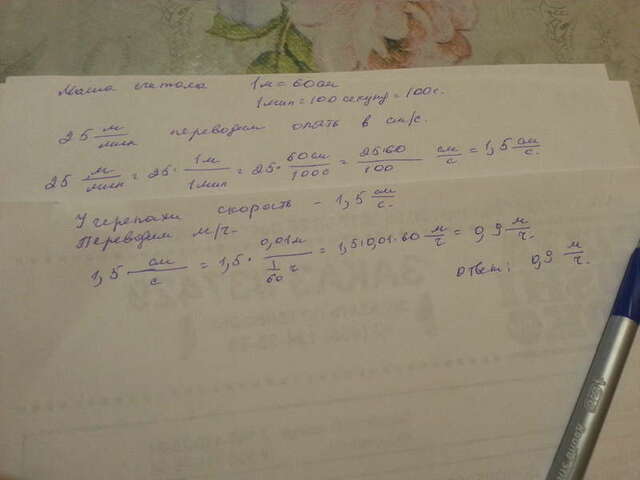 Маша считала 1м = 60см
1мин = 100 секунд = 100с.
25 м/мин переводим опять в см/с.
25 м/мин = 25 · 1м/1мин = 25 · 60см/100с = 25·60/100 см/с = 1,5 см/с.
У черепахи скорость – 1,5 см/с.
Переводим м/ч.
1,5 · см/с = 1,5 · 0,01м / 1/60 ч = 1,5·0,01·60 м/ч = 0,9 м/ч.
ответ: 0,9 м/ч.